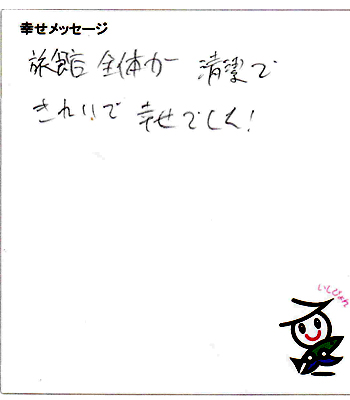 幸せメッセージ
旅館全体が 清潔で
きれいで 幸せでした!
いしぴょん